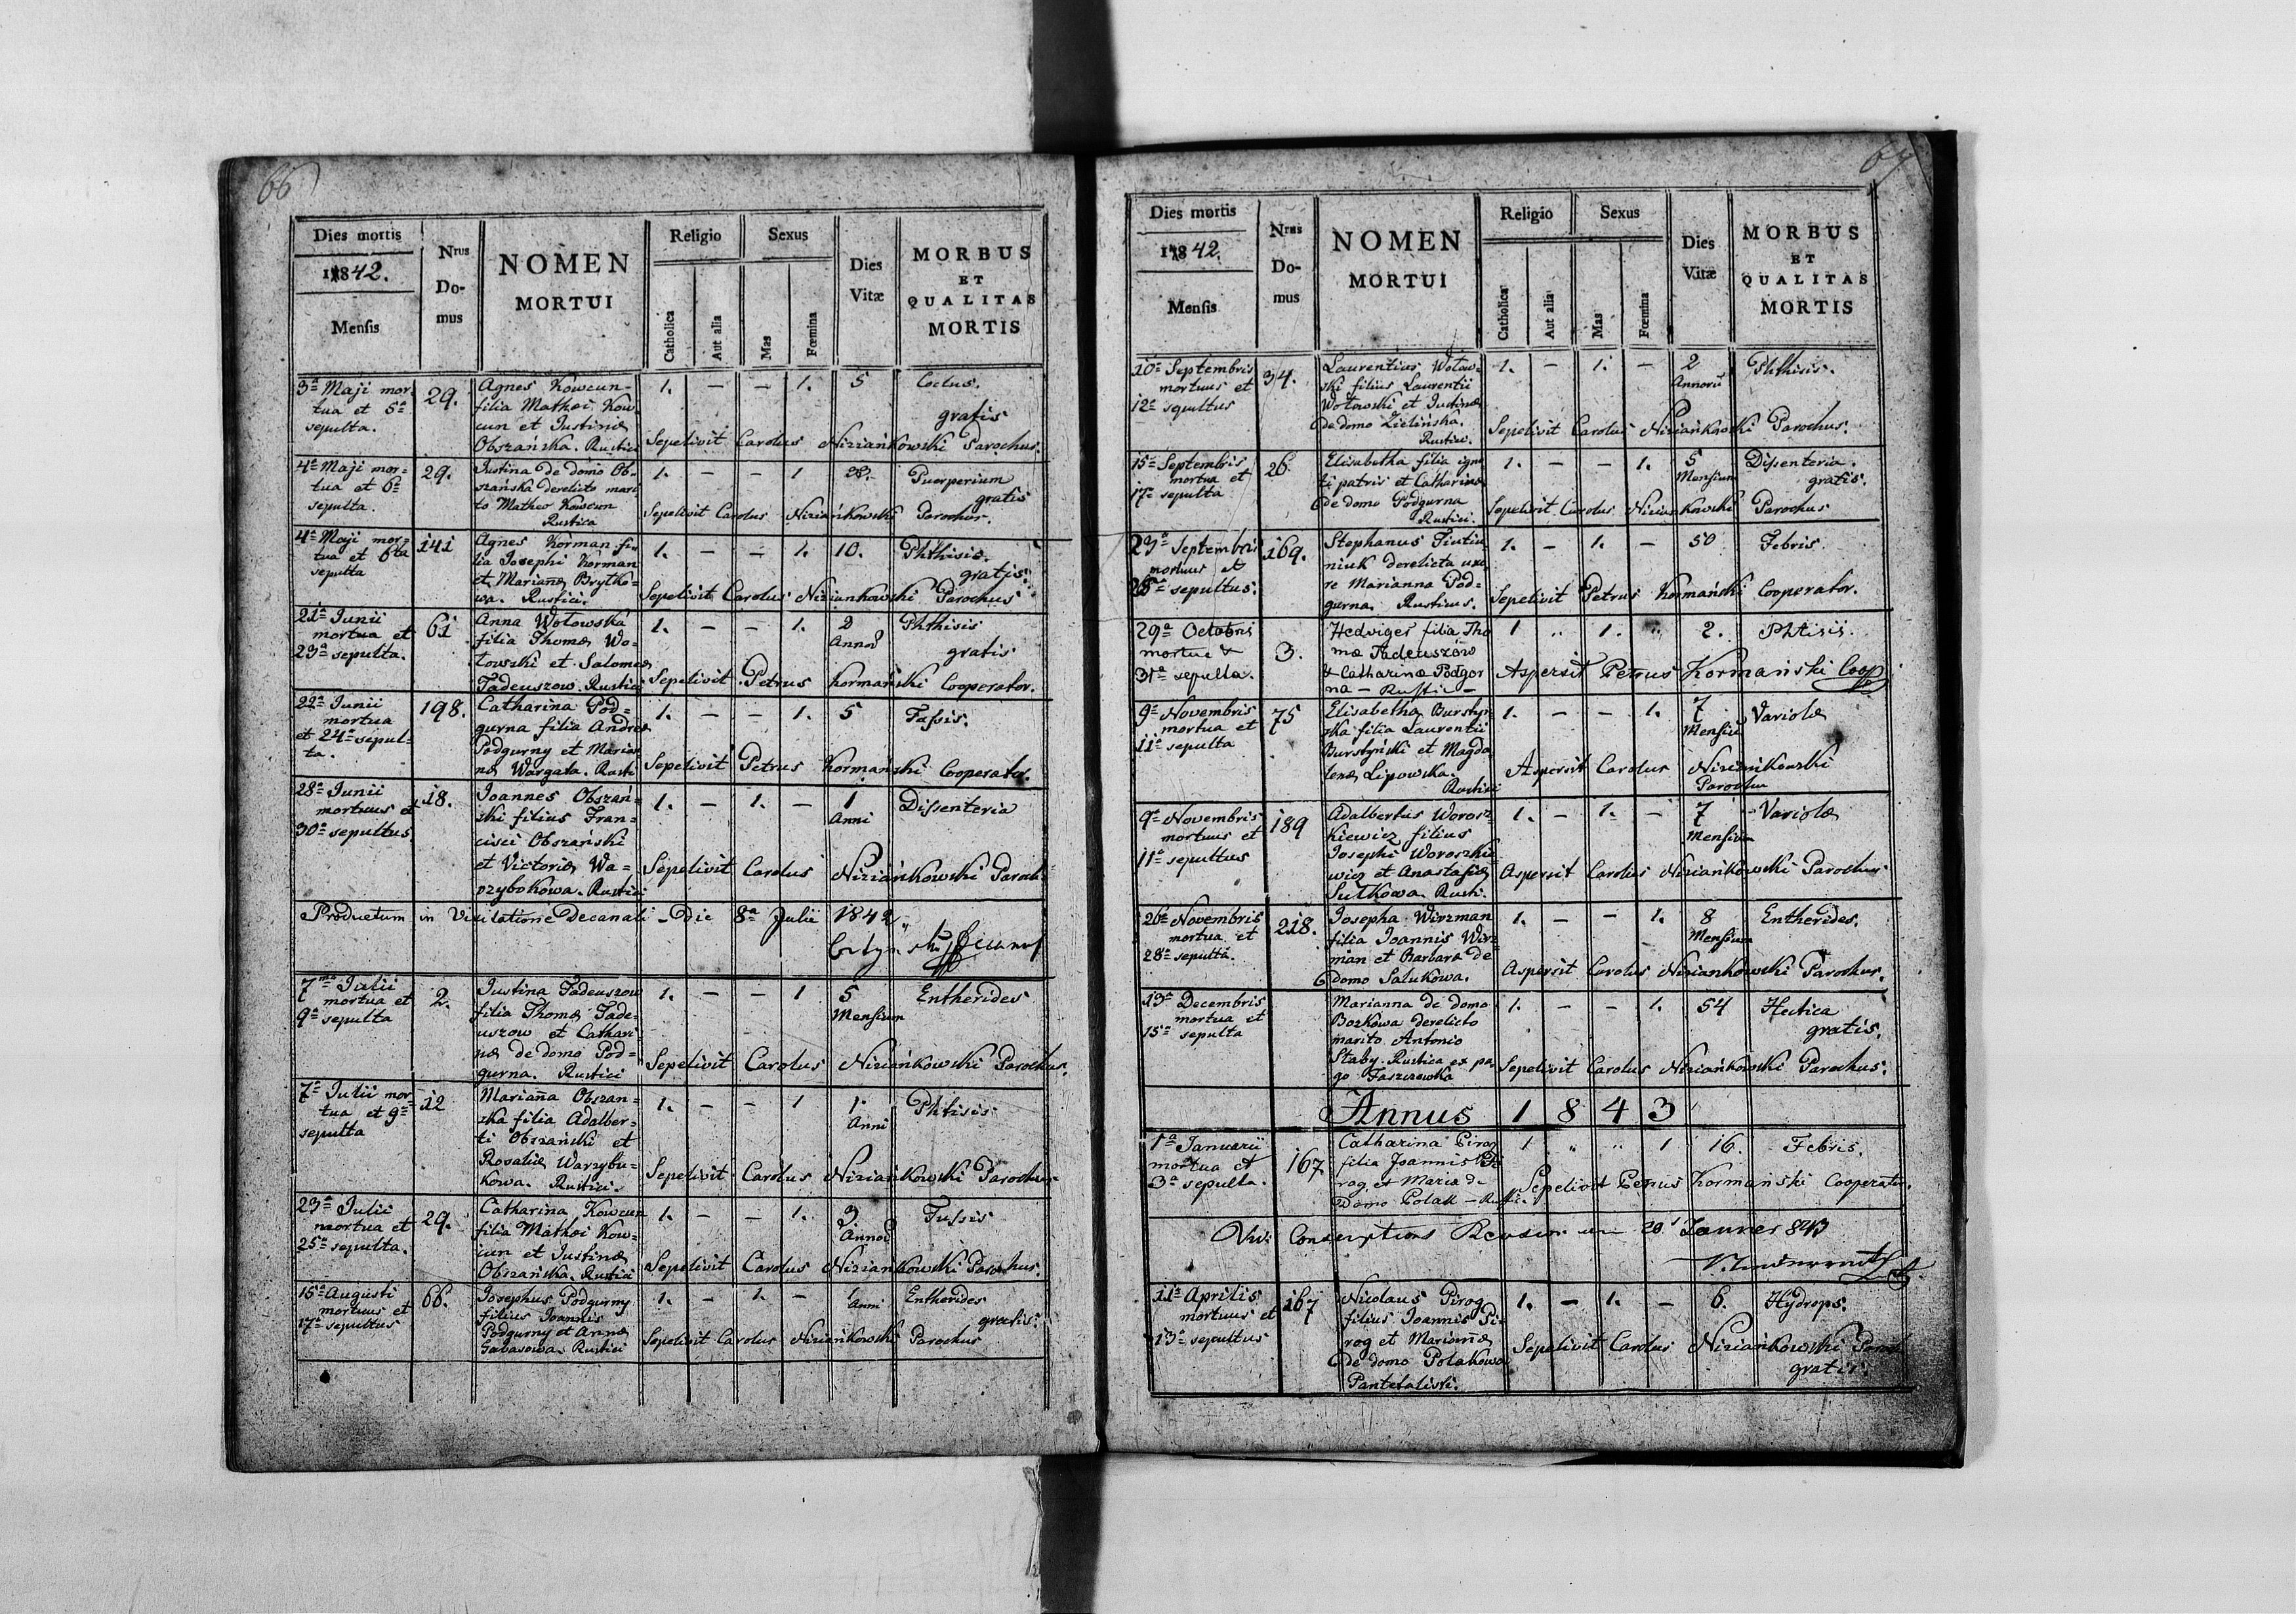 66
Dies mortis
1842.
Mensis
Nrus
Do-
mus
NOMEN
MORTUI
Religio
Catholica
Aut alia
Sexus
Mas
Fœmina
Dies
Vitæ
MORBUS
ET
QUALITAS
MORTIS
3a Maji mor-
tua et 5a
sepulta.
29.
Agnes Kowcun-
filia Mathæi Kow
cun et Justinæ
Obszańska. Rustici
1. — — 1. 5
gratis
Sepelivit Carolus Niziańkowski Parochus.
4a Maji mor-
tua et 6a
sepulta.
29.
Justina de domo Ob-
szańska derelicto mari
to Matheo Kowcun
Rustica
1. — — 1 28. Puerperium
gratis
Sepelivit Carolus Niziańkowski Parochus.
4a Maji mor-
tua et 6ta
sepulta
141
Agnes Korman fi-
lia Josephi Korman
et Mariannæ Brytko-
wa. Rustici.
1. — — 1. 10. Phthisis.
gratis.
Sepelivit Carolus Niziankowski Parochus
21a Junii
mortua et
23a sepulta.
61
Anna Wołowska
filia Thomæ Wo-
łowszki et Salomeæ
Tadeuszow. Rustici
1. — — 1. 2 Phthisis
Annor
gratis
Sepelivit Petrus Kormański Cooperator.
22a Junii
mortua
et 24a sepul-
ta.
198.
Catharina Pod-
gurna filia Andreæ
Podgurny et Marian
næ Wargata. Rusti
1. — — 1. 5 Tussis.
Sepelivit Petrus Kormański Cooperator.
28a Junii
mortuus et
30a sepultus.
18.
Joannes Obszań-
ski filius Fran-
cisci Obszański
et Victoriæ Wa-
przybokowa. Rustici
1. — 1. — 1 Dissenteria
Anni
Sepelivit Carolus Niziańkowski Paroch.
Productum in Visitatione Decanali Die 8a Julii 1842
7ma Julii
mortua et
9a sepulta
2.
Justina Tadeuszow
filia Thomæ Tade-
uszow et Cathari-
næ de domo Pod-
gurna. Rustici
1. — — 1 5 Entherides
Mensium
Sepelivit Carolus Niziańkowski Parochus.
7a Julii mor-
tua et 9a
sepulta
12
Marianna Obszan-
ska filia Adalber-
ti Obszański et
Rosaliæ Warzybu-
kowa. Rustici.
1. — — 1 1. Phtisis
Anni
Sepelivit Carolus Niziańkowski Parochus
23a Julii
mortua et
25a sepulta.
29.
Catharina Kowcun
filia Mathæi Kow-
cun et Justinæ
Obszańska. Rustici
1. — — 1. 3. Tussis
Annor
Sepelivit Carolus Niziańkowski Parochus.
15a Augusti
mortuus et
17a sepultus
66.
Josephus Podgurny
filius Joannis
Podgurny et Annæ
Gawasowa. Rustici
1. — 1. — 1 Entherides
Anni
gratis.
Sepelivit Carolus Niziańkowski Parochus
67
Dies mortis
1842.
Mensis
Nrus
Do-
mus
NOMEN
MORTUI
Religio
Catholica
Aut alia
Sexus
Mas
Fœmina
Dies
Vitæ
MORBUS
ET
QUALITAS
MORTIS
10a Septembris
mortuus et
12a sepultus
34.
Laurentius Wołow-
ski filius Laurentii
Wołowski et Justinæ
de domo Zielińska.
Rustici.
1. — 1. — 2 Phthisis.
Annorū
Sepelivit Carolus Niziańkowski Parochus.
15a Septembris
mortua et
17a sepulta
26.
Elisabetha filia igno
ti patris et Catharinæ
de domo Podgurna
Rustici.
1. — — 1. 5 Dissenteria.
Mensium gratis.
Sepelivit Carolus Niziankowski Parochus
23a Septembris
mortuus et
25a sepultus.
169.
Stephanus
niuk derelicta uxo
re Marianna Pod-
gurna. Rusticus.
1. — 1. — 50 Febris.
Sepelivit Petrus Kormański Cooperator.
29a Octobris
mortua &
31a sepulta.
3.
Hedviges filia Tho
mæ Tadeuszow
& Catharinæ Podgor
na — Rustic —
1 " 1. " 2. Phtisis.
Aspersit Petrus Kormański Coop
9a Novembris
mortua et
11a sepulta
75
Elisabetha Bursztyn
ska filia Laurentii
Bursztyński et Magda
lenæ Lipowska.
Rustici
1. — — 1. 7 Variolæ
Mensiū
Aspersit Carolus Niziańkowski
Parochus
9a Novembris
mortuus et
11a sepultus
189
Adalbertus Worosz-
kiewicz filius
Josephi Woroszkie-
wicz et Anastasiæ
Sutkowa. Rusti.
1. — 1. — 7 Variolæ
Mensium
Aspersit Carolus Niziańkowski Parochus
26a Novembris
mortua et
28a sepulta.
218.
Josepha Wirzman
filia Joannis Wirz-
man et Barbaræ de
domo Salukowa.
1. — — 1. 8 Entherides.
Mensium
Aspersit Carolus Niziankowski Parochus.
13a Decembris
mortua et
15a sepulta
Marianna de domo
Bozkowa derelicto
marito Antonio
Słaby. Rustica ex pa-
go Taszczowka
1. — — 1. 54 Hectica
gratis.
Sepelivit Carolus Niziańkowski Parochus.
Annus 1843
1a Januarii
mortua et
3a sepulta.
167
Catharina Pirog
filia Joannis Pi
rog et Maria de
Domo Polak — Rustic.
1 " " 1 16. Febris.
Sepelivit Petrus Kormański Cooperator.
20 1843
11a Aprilis
mortuus et
13a sepultus
167
Nicolaus Pirog
filius Joannis Pi-
rog et Mariannæ
de domo Polakowa
Pantelaliski.
1. — 1. — 6. Hydrops.
Sepelivit Carolus Niziańkowski Paroch
gratis.